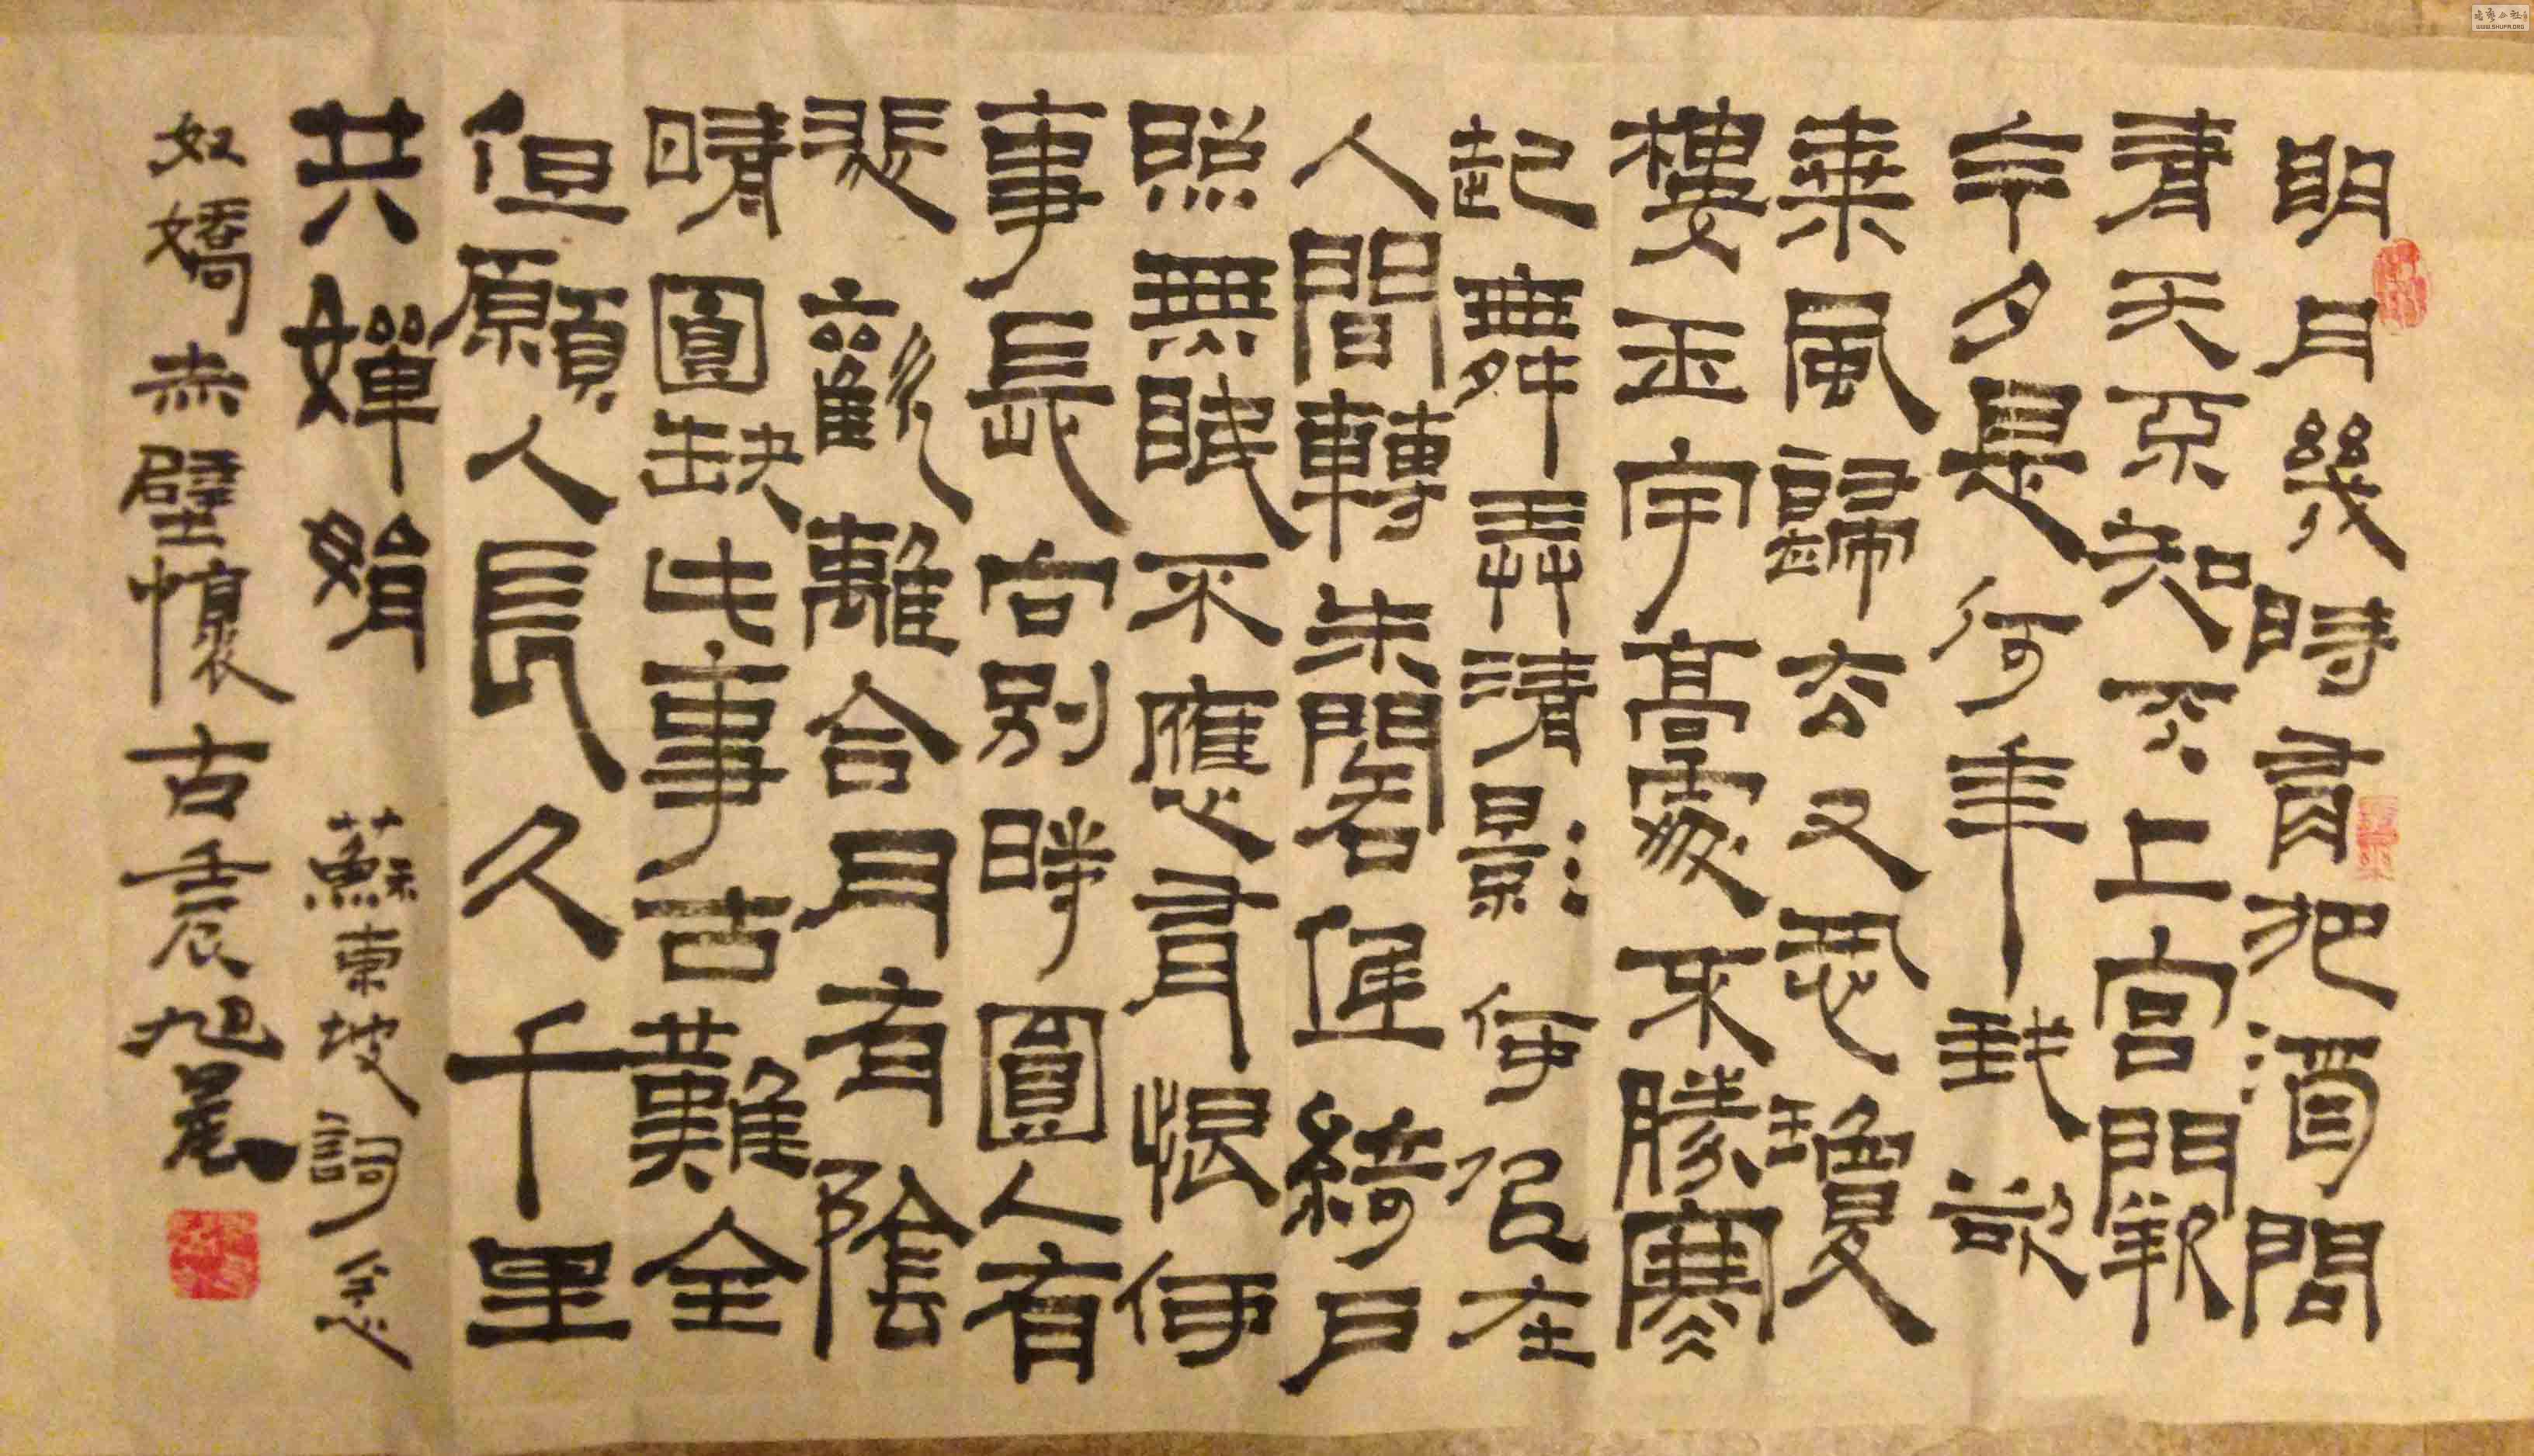 明月幾時有把酒問
青天不知天上宮闕
今夕是何年我欲
乘風歸去又恐瓊
樓玉宇高處不勝寒
起舞弄清影何似在
人間轉朱閣低綺戶
照無眠不應有恨何
事長向別時圓人有
悲歡離合月有陰
晴圓缺此事古難全
但願人長久千里
共嬋娟 蘇東坡詞念
奴嬌赤壁懷古壬辰旭晨
WWW.SHUFA.ORG